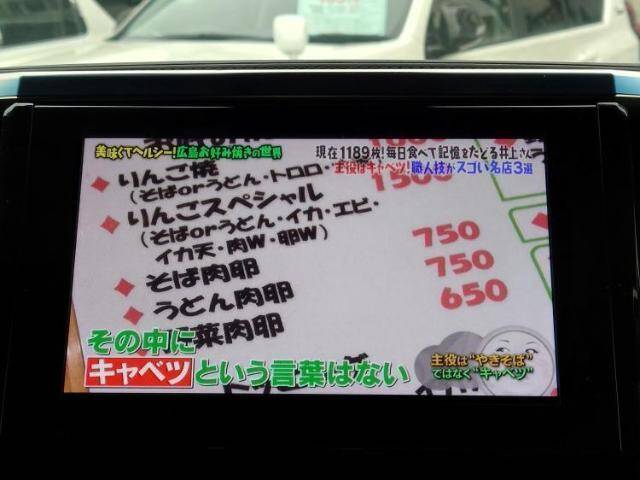 美味くてヘルシー!広島お好み焼きの世界
現在1189枚!毎日食べて記憶をたどる井上さん
主役はキャベツ!職人技がスゴい名店3選
りんご焼
(そばorうどん・トロロ
1300
りんごスペシャル
(そばorうどん・イカ・エビ・
イカ天・肉W・卵W)
750
そば肉卵
750
うどん肉卵
650
菜肉卵
その中に
キャベツという言葉はない
主役は"やきそば"
ではなく"キャベツ"